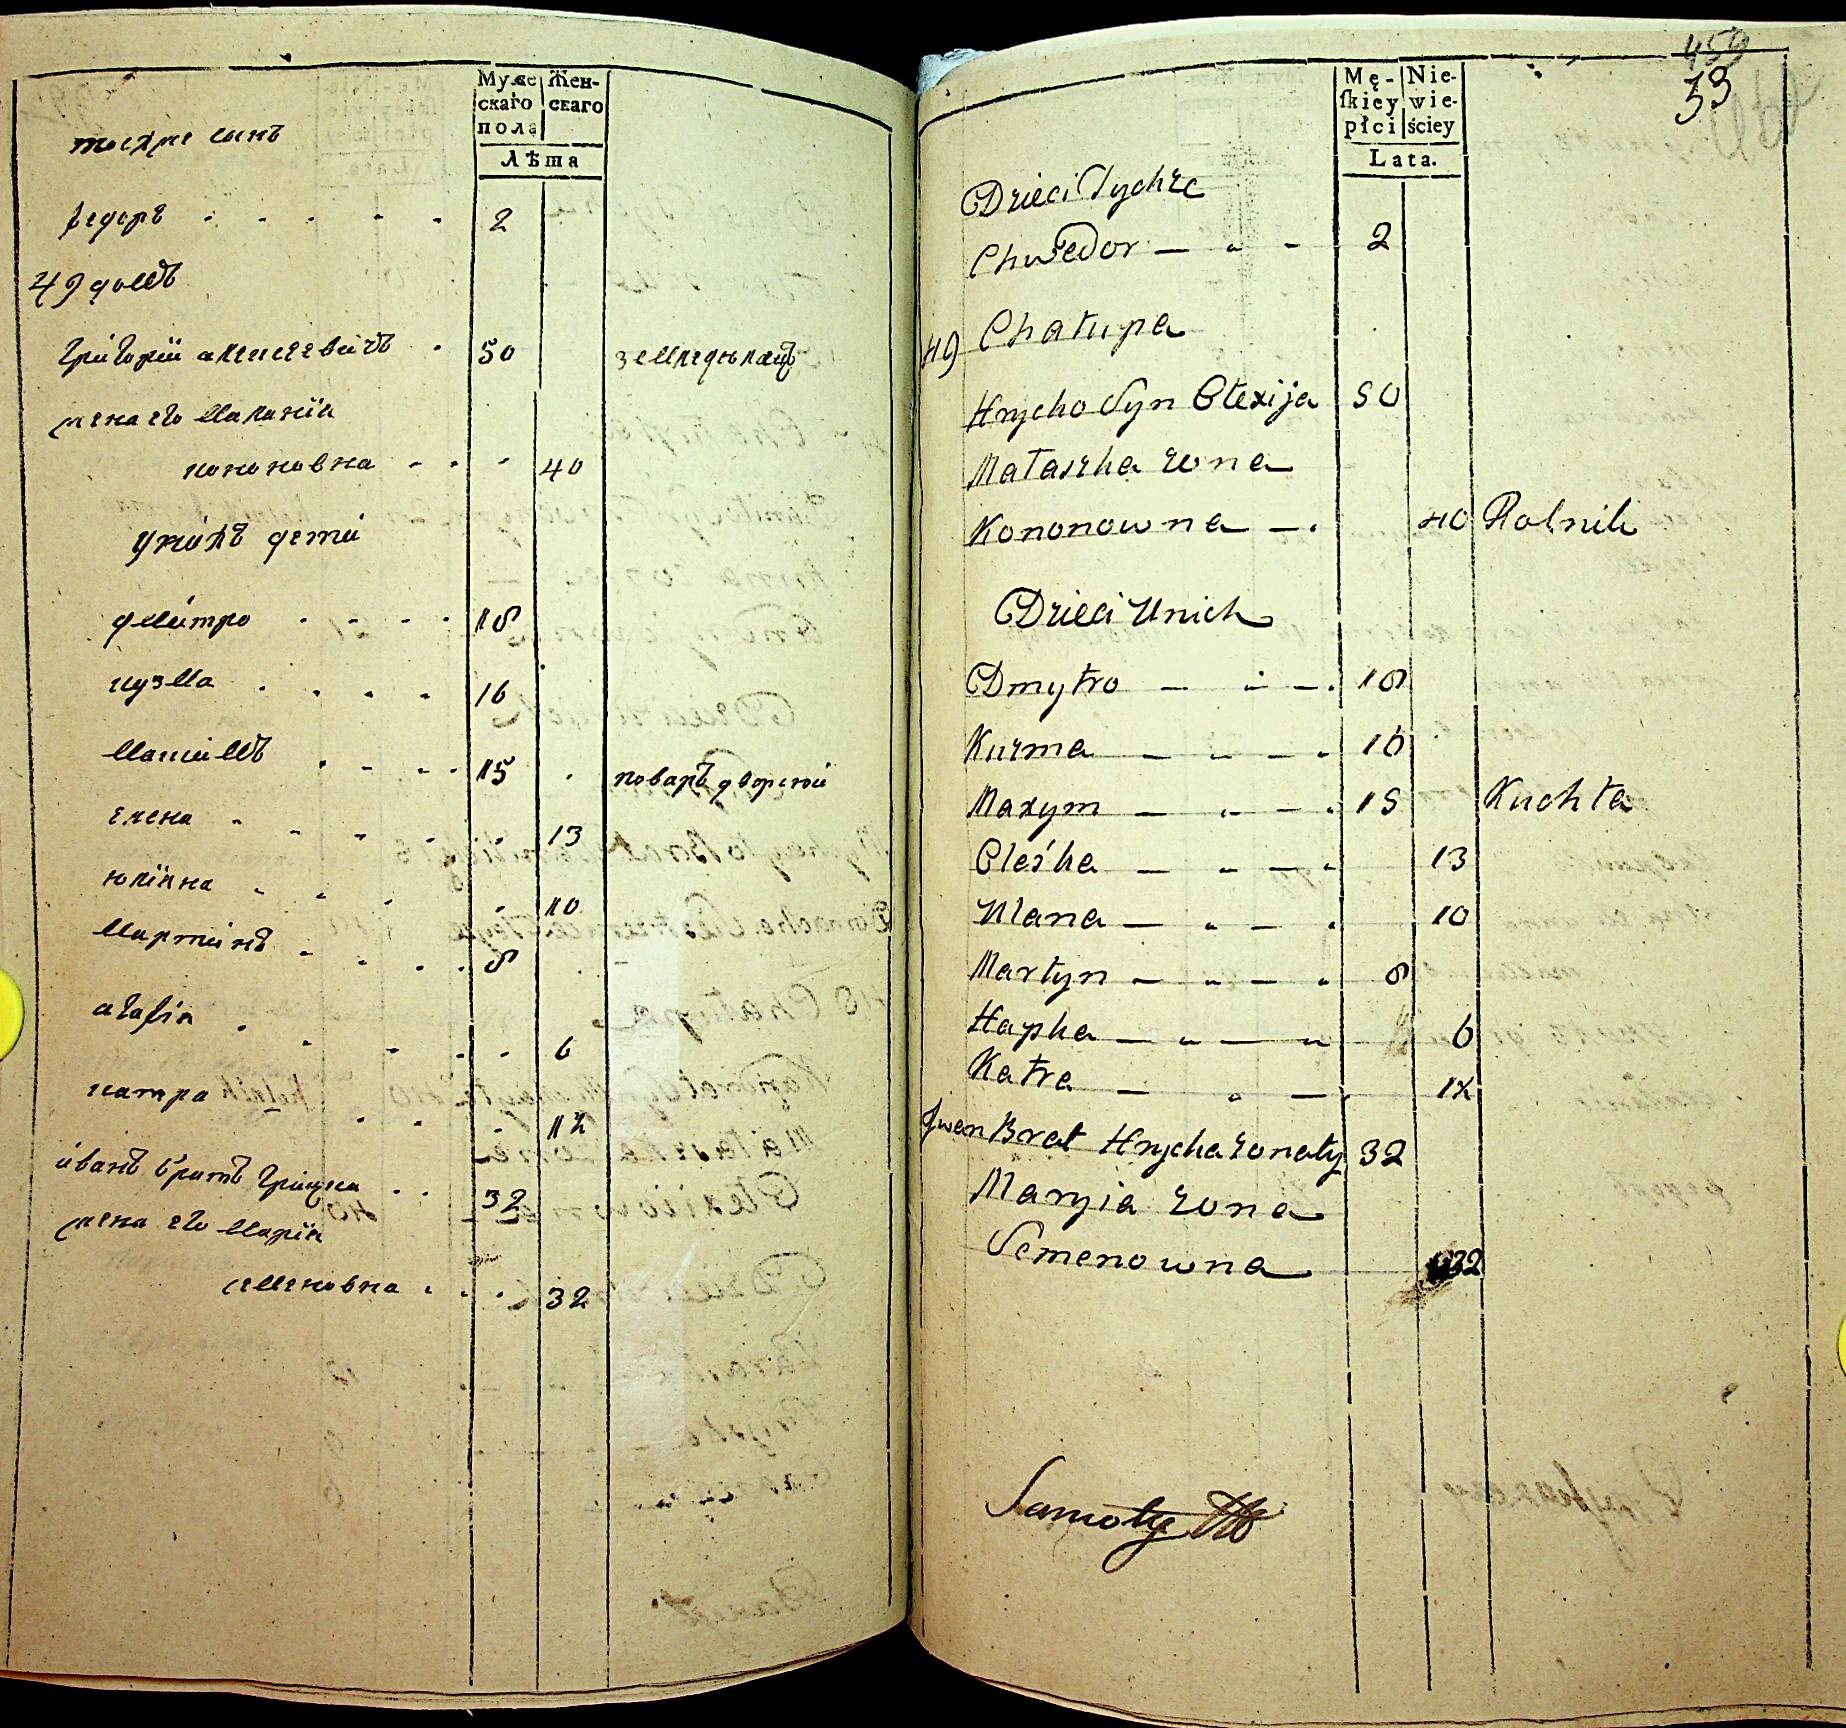 Муже Жен-
скаго скаго
пола
Лѣта
тоехже сынъ
федоръ 2
49 домъ
григорій алексеевичъ 50 земледѣлецъ
жена его маланія
кононовна 40
унихъ дети
дмитро 18
кузма 16
максимъ 15 поваръ дворскій
елена 13
юліяна 10
мартинъ 8
агафія 6
катра 12
иванъ братъ грицка 32
жена его марія
семеновна 32
459
53
Mę- Nie-
skiey wie-
płci ściey
Lata.
Dzieci Tychże
Chwedor 2
49 Chałupa
Hrycho Syn Olexija 50
Małaszka żona
Kononowna 40 Rolnik
Dzieci Unich
Dmytro 18
Kuzma 16
Maxym 15 Kuchta
Oleśka 13
Ulana 10
Martyn 8
Hapka 6
Katra 12
Jwan Brat Hrycha żonaty 32
Maryia żona
Semenowna 32